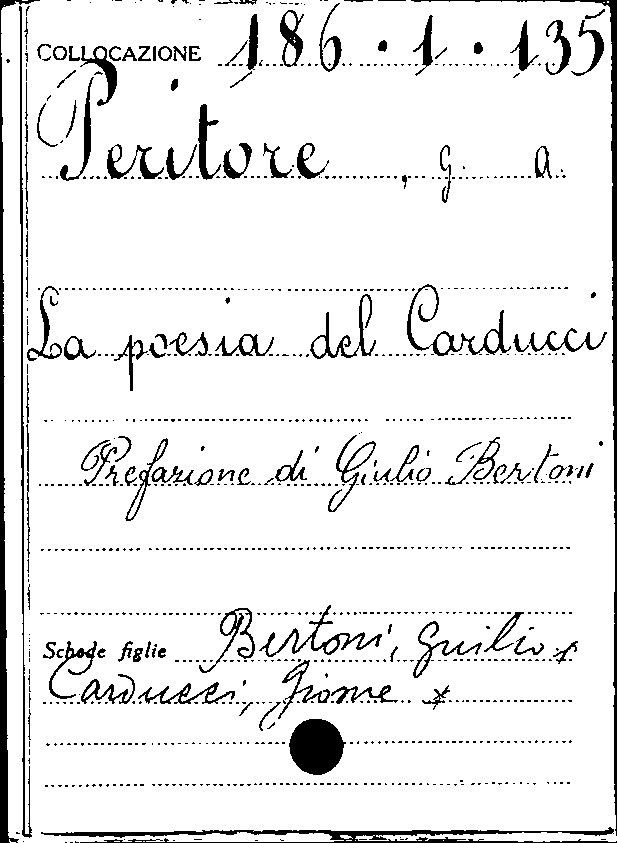 COLLOCAZIONE 186.1.135
Peritore, G. A.
La poesia del Carducci
Prefazione di Giulio Bertoni
Schede figlie Bertoni, Guilio *
Carducci, Giosue *